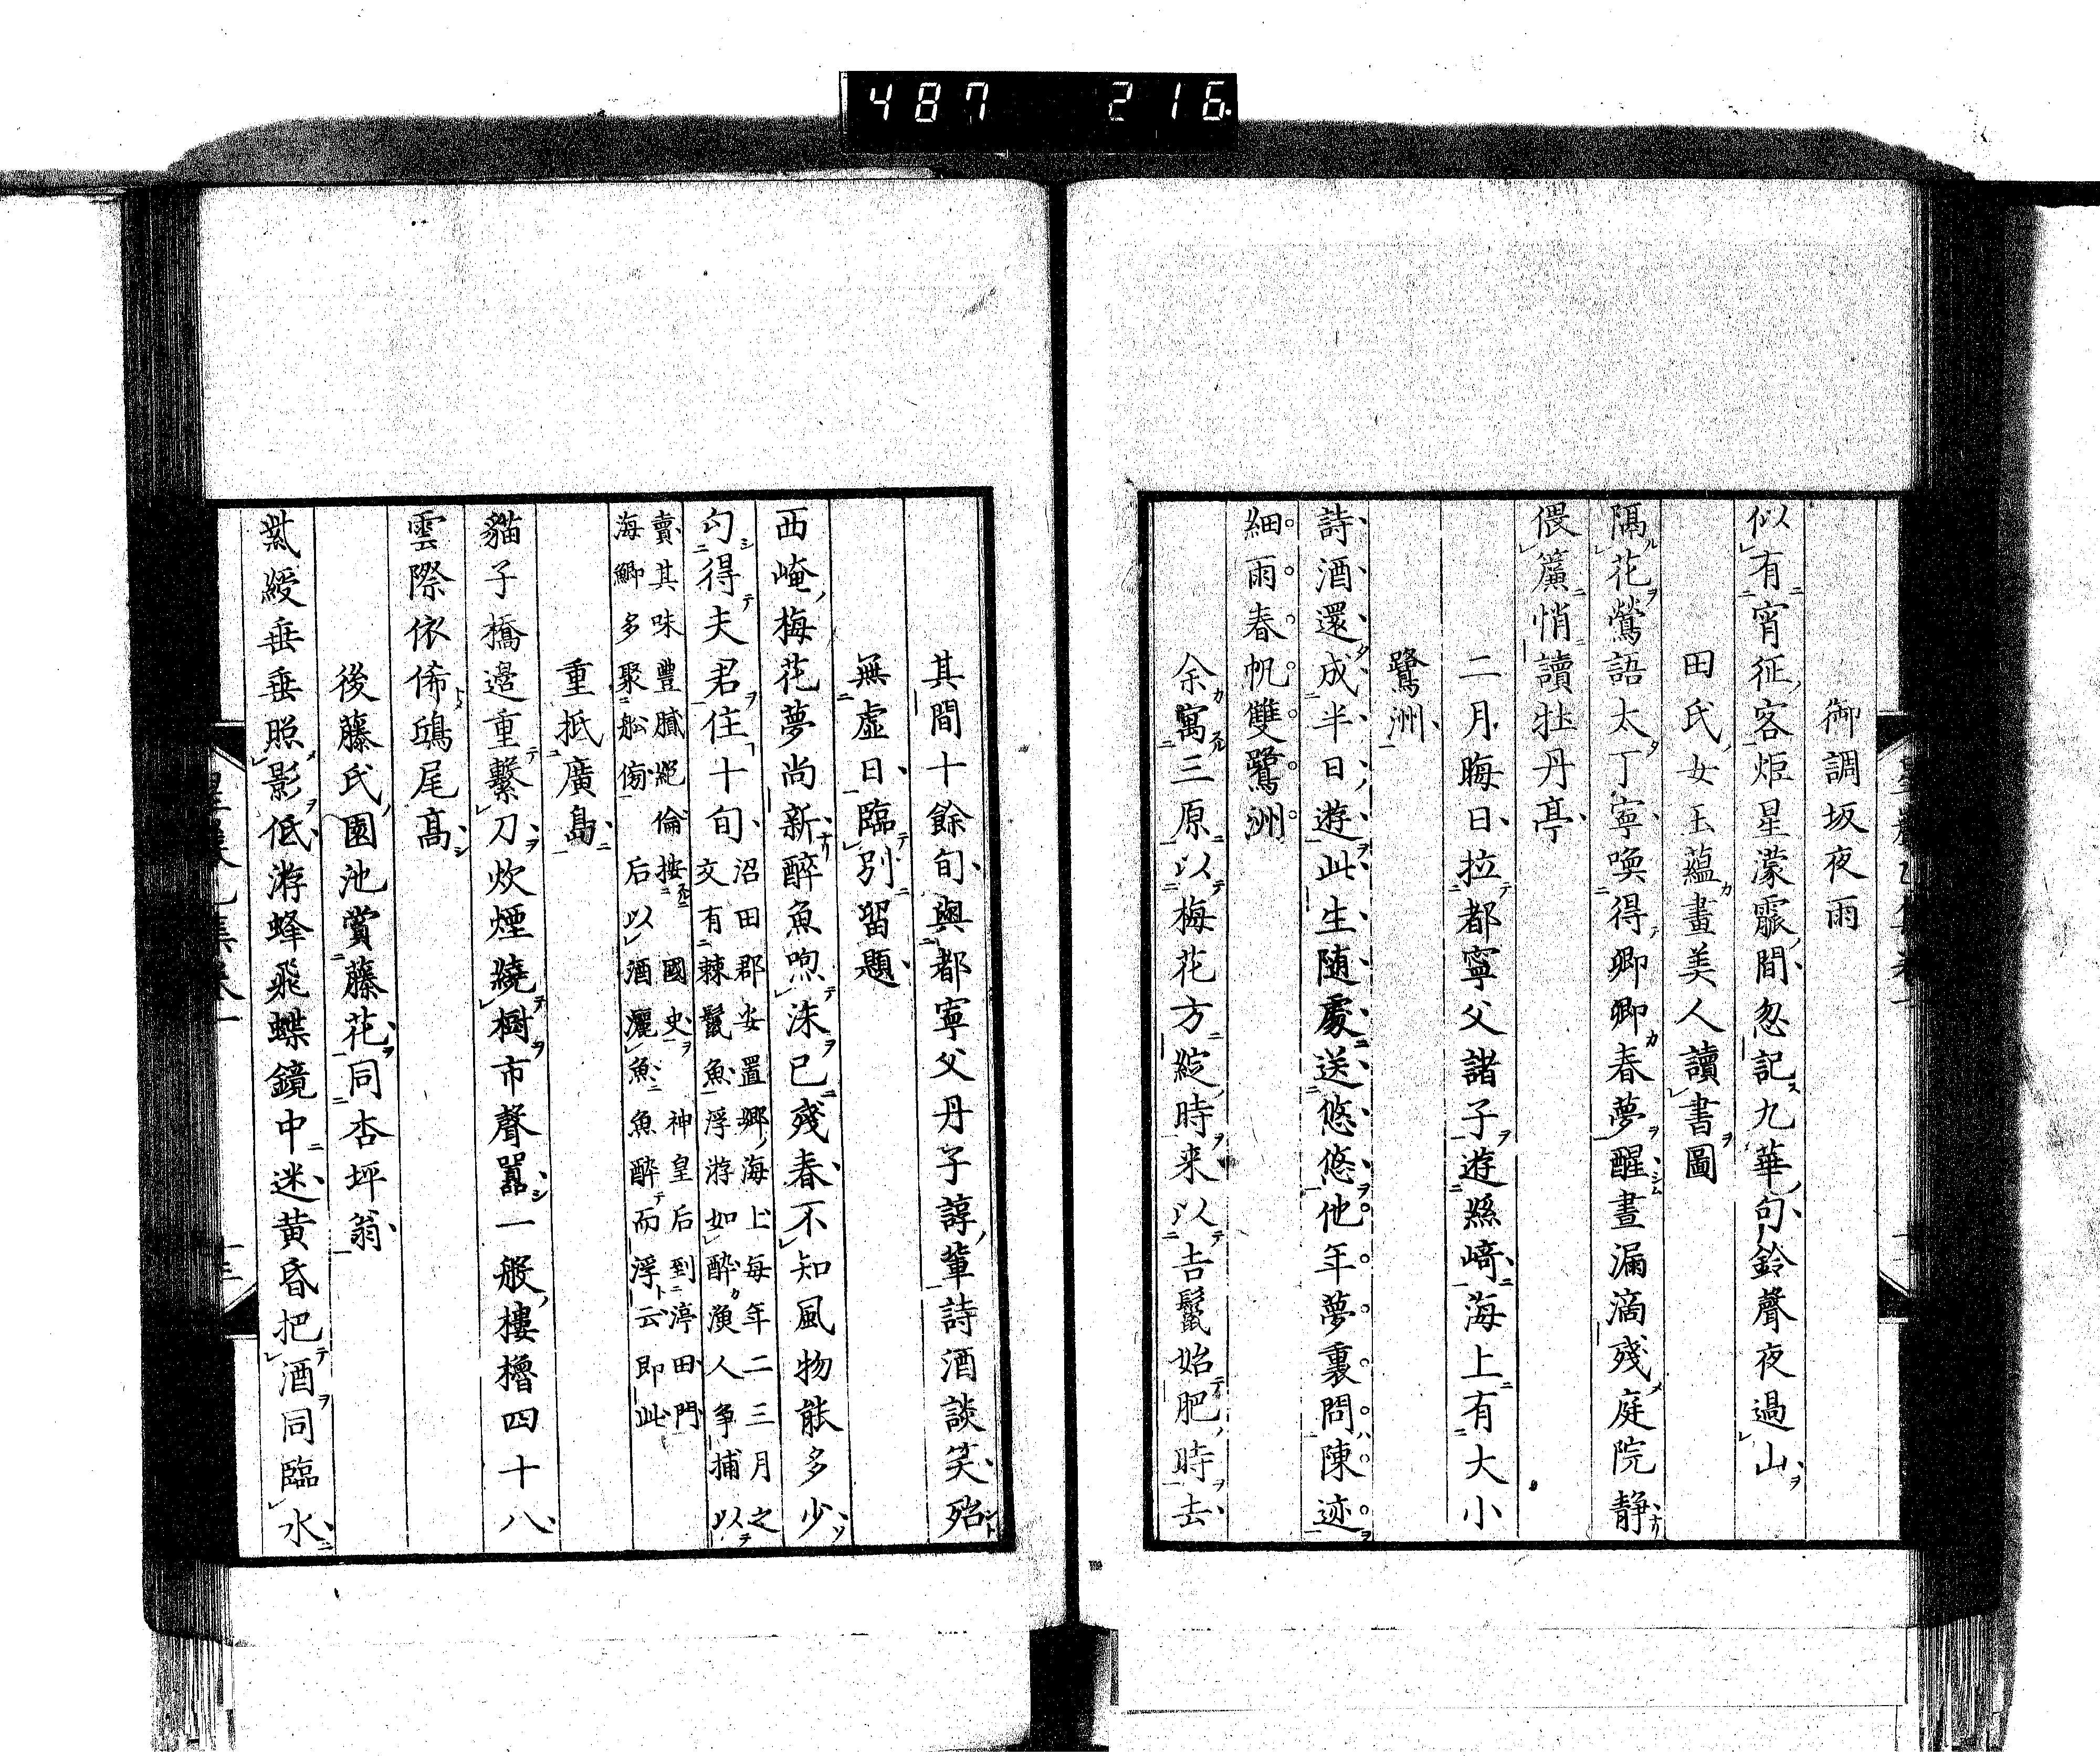 487 216
御調坂夜雨
似有宵征客炬星濛霢間忽記九華句鈴聲夜過山
田氏女玉蘊畫美人讀書圖
隔花鶯語太丁寧喚得卿卿春夢醒晝漏滴殘庭院靜
偎簾悄讀牡丹亭
二月晦日拉都寧父諸子遊絲﨑海上有大小
鷺洲
詩酒還成半日遊此生随處送悠悠他年夢裏問陳迹
細雨春帆雙鷺洲
余寓三原以梅花方綻時来以吉鬣始肥時去
其間十餘旬與都寧父丹子諄輩詩酒談笑殆
無虛日臨別留題
西崦梅花夢尚新醉魚喣沫已殘春不知風物能多少
勾得夫君住十旬
沼田郡安置鄉海上每年二三月之
交有棘鬣魚浮游如醉漁人争捕以
賣其味豐膩絕倫按國史神皇后到渟田門
海鯽多聚船傍后以酒灑魚魚醉而浮云即此
重抵廣島
貓子橋邊重繫刀炊煙繞樹市聲囂一般樓櫓四十八
雲際依俙鴟尾高
後藤氏園池賞藤花同杏坪翁
紫綬垂垂照影低游蜂飛蝶鏡中迷黃昏把酒同臨水